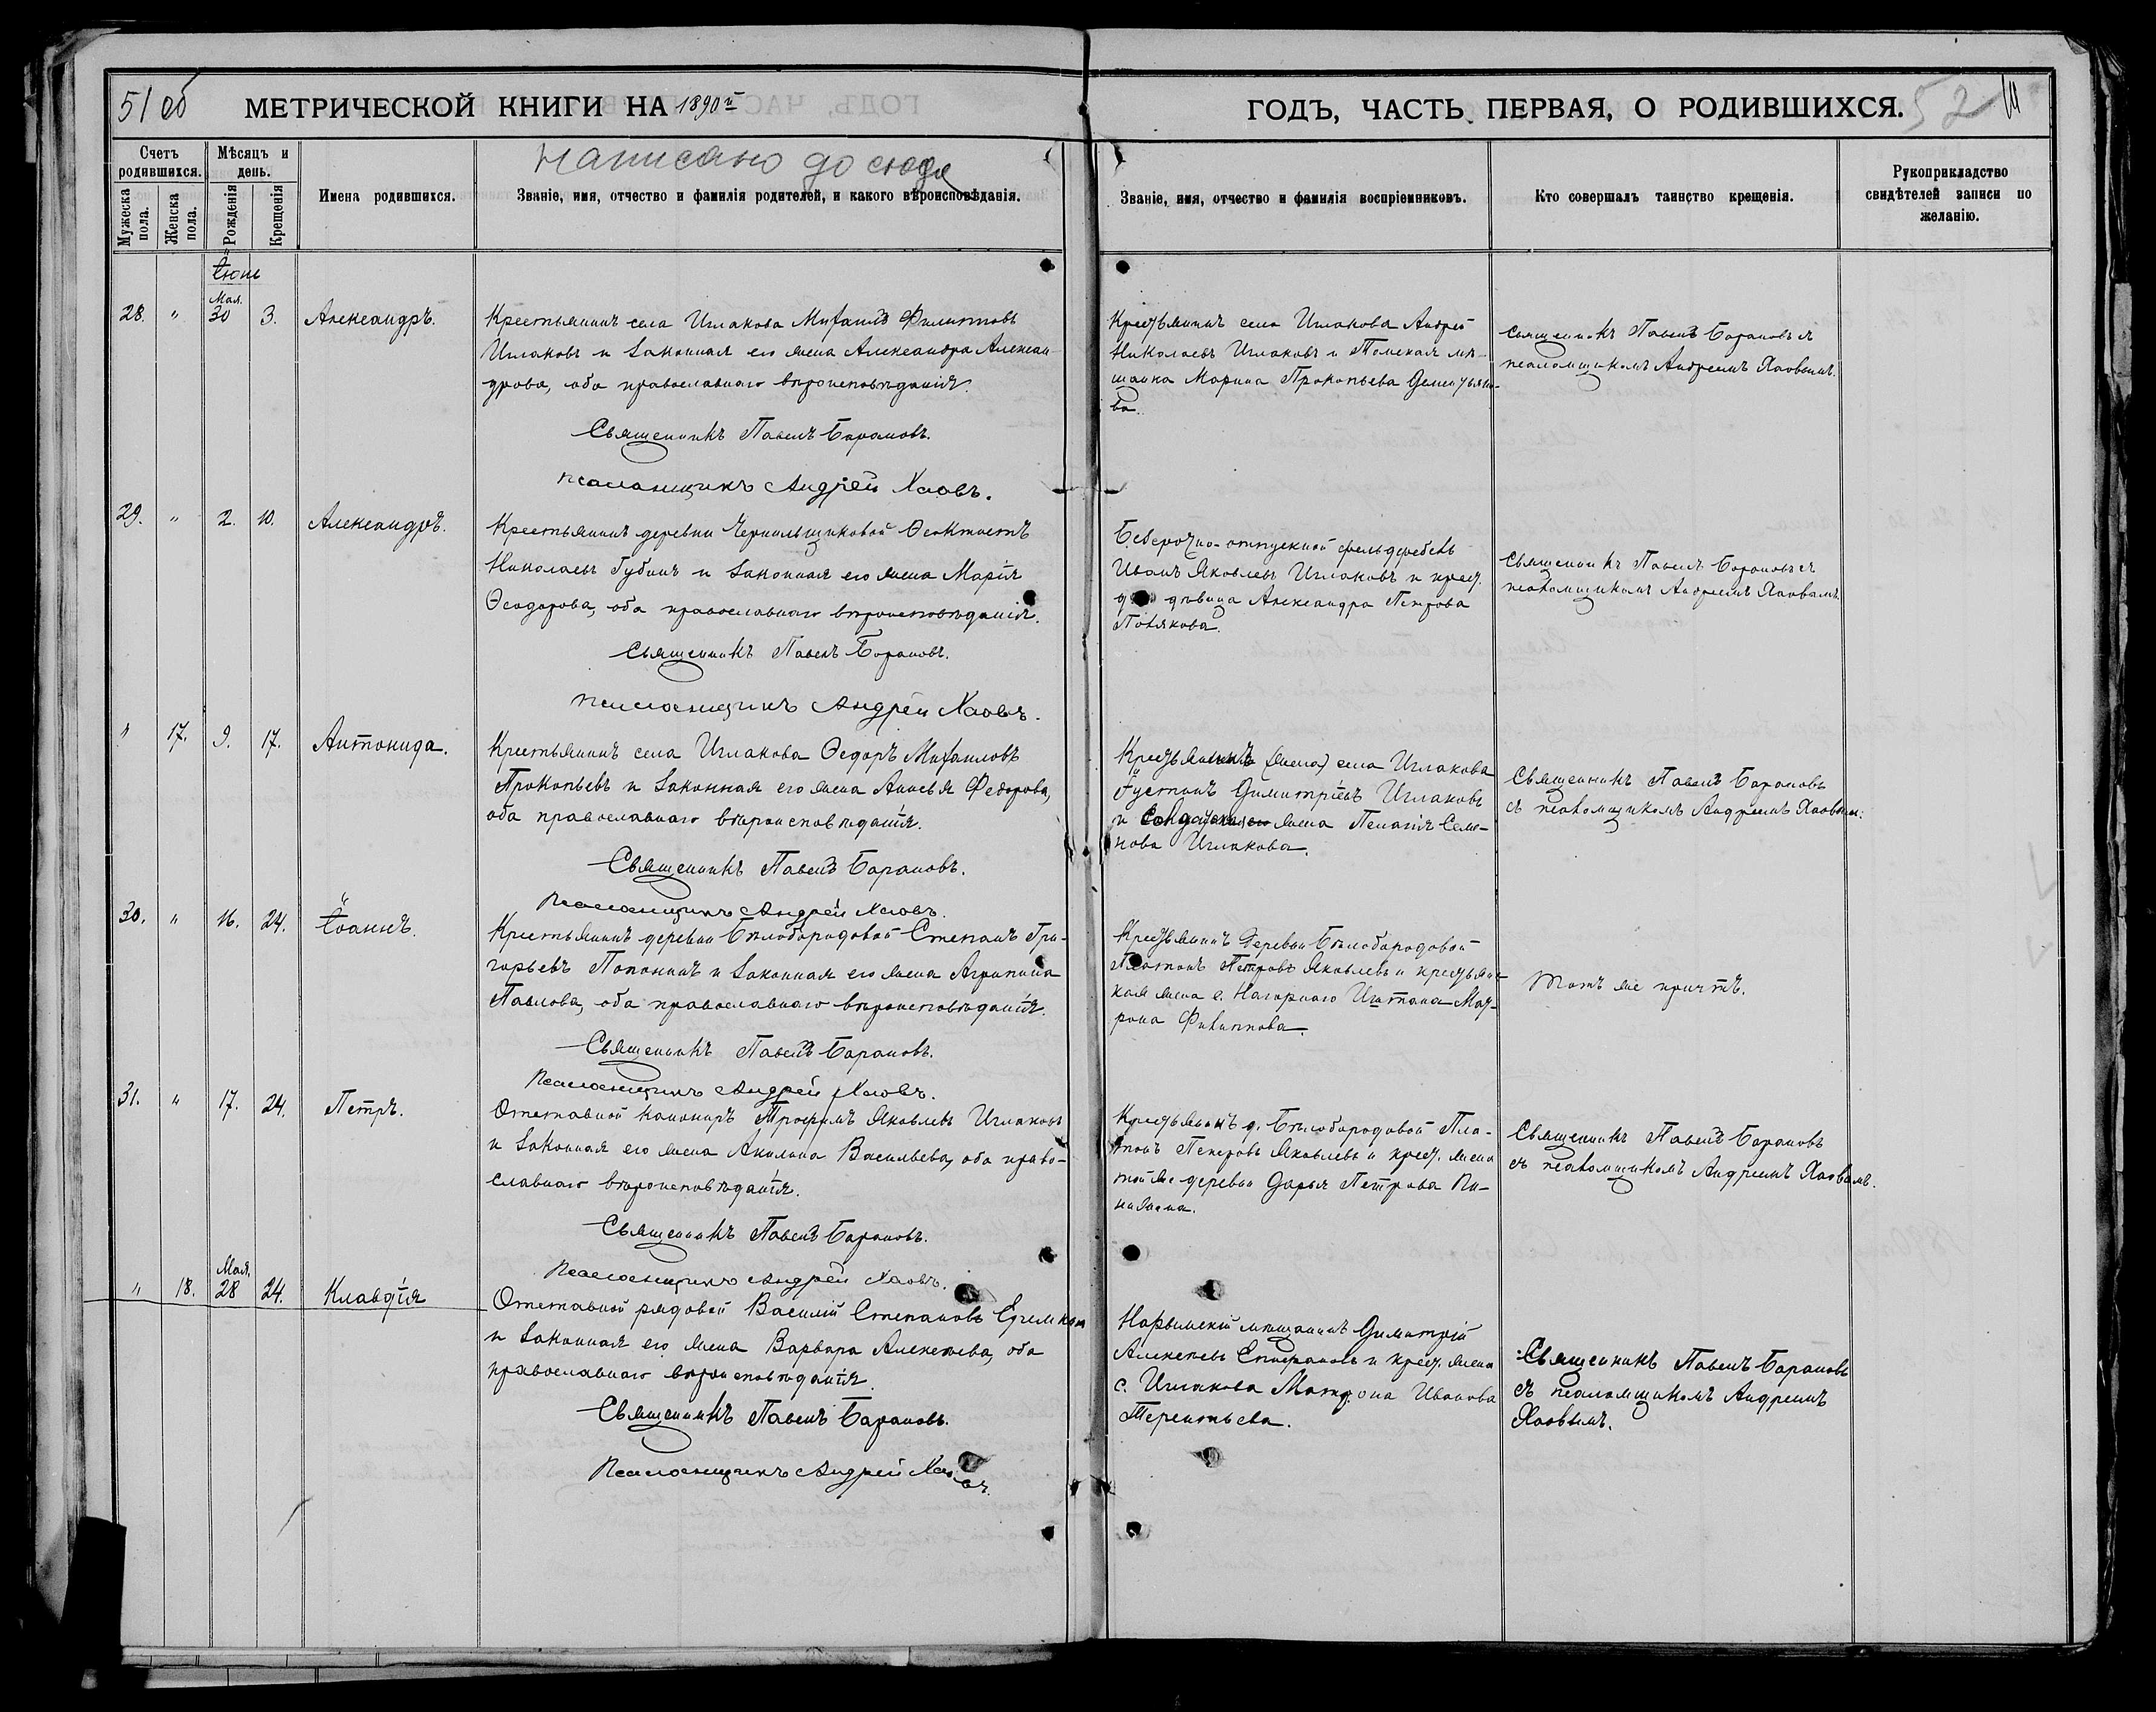 51 об
МЕТРИЧЕСКОЙ КНИГИ НА 1890й
ГОДЪ, ЧАСТЬ ПЕРВАЯ, О РОДИВШИХСЯ.
52
Написано до сюда
Счетъ родившихся.
Мѣсяцъ и день.
Мужеска пола.
Женска пола.
Рожденія
Крещенія
Имена родившихся.
Званіе, имя, отчество и фамилія родителей, и какого вѣроисповѣданія.
Званіе, имя, отчество и фамилія воспріемниковъ.
Кто совершалъ таинство крещенія.
Рукоприкладство свидѣтелей записи по желанію.
Іюнь
28. " Мая. 30 3. Александръ.
Крестьянинъ села Иглакова Михаилъ Филиповъ
Иглаковъ и законная его жена Александра Алексан-
дрова, оба православнаго вѣроисповѣданія.
Священникъ Павелъ Барановъ.
Псаломщикъ Андрей Хаовъ.
Крестьянинъ села Иглакова Андрей
Николаевъ Иглаковъ и Томская мѣ-
щанка Марина Прокопьева Дементьѣ-
ва.
Священникъ Павелъ Барановъ съ
псаломщикомъ Андреемъ Хаовымъ.
29. " 2. 10. Александръ.
Крестьянинъ деревни Чернильщиковой Ѳеоктистъ
Николаевъ Губинъ и законная его жена Марія
Ѳеодорова, оба православнаго вѣроисповѣданія.
Священникъ Павелъ Барановъ.
Псаломщикъ Андрей Хаовъ.
Безсрочно-отпускной фельдфебель
Иванъ Яковлевъ Иглаковъ и крест.
дѣвица Александра Петрова
Полякова.
Священникъ Павелъ Барановъ съ
псаломщикомъ Андреемъ Хаовымъ.
" 17. 9. 17. Антонида.
Крестьянинъ села Иглакова Ѳедоръ Михаиловъ
Прокопьевъ и законная его жена Анисья Федорова,
оба православнаго вѣроисповѣданія.
Священникъ Павелъ Барановъ.
Псаломщикъ Андрей Хаовъ.
Крестьянинъ (жена) села Иглакова
Іустинъ Димитріевъ Иглаковъ
и Солдатская жена Пелагія Семе-
нова Иглакова.
Священникъ Павелъ Барановъ
съ псаломщикомъ Андреемъ Хаовымъ.
30. " 16. 24. Іоаннъ.
Крестьянинъ деревни Бѣлобородовой Степанъ Гри-
горьевъ Попонинъ и законная его жена Агрипина
Павлова, оба православнаго вѣроисповѣданія.
Священникъ Павелъ Барановъ.
Псаломщикъ Андрей Хаовъ.
Крестьянинъ деревни Бѣлобородовой
Платонъ Петровъ Яковлевъ и крестьян-
ская жена с. Нагорнаго Иштана Мат-
рона Филиппова.
Тотъ же причтъ.
31. " 17. 24. Петръ.
Отставной канониръ Трофимъ Яковлевъ Иглаковъ
и законная его жена Акилина Васильева, оба право-
славнаго вѣроисповѣданія.
Священникъ Павелъ Барановъ.
Псаломщикъ Андрей Хаовъ.
Крестьянинъ д. Бѣлобородовой Пла-
тонъ Петровъ Яковлевъ и крест. жена
той же деревни Дарья Петрова
Священникъ Павелъ Барановъ
съ псаломщикомъ Андреемъ Хаовымъ.
" 18. Мая. 28 24. Клавдія
Отставной рядовой Василій Степановъ
и законная его жена Варвара Алексѣева, оба
православнаго вѣроисповѣданія.
Священникъ Павелъ Барановъ.
Псаломщикъ Андрей Хаовъ.
Нарымскій мѣщанинъ Димитрій
Алексѣевъ Епифановъ и крест. жена
с. Иглакова Матрона Иванова
Терентьева.
Священникъ Павелъ Барановъ
съ псаломщикомъ Андреемъ
Хаовымъ.